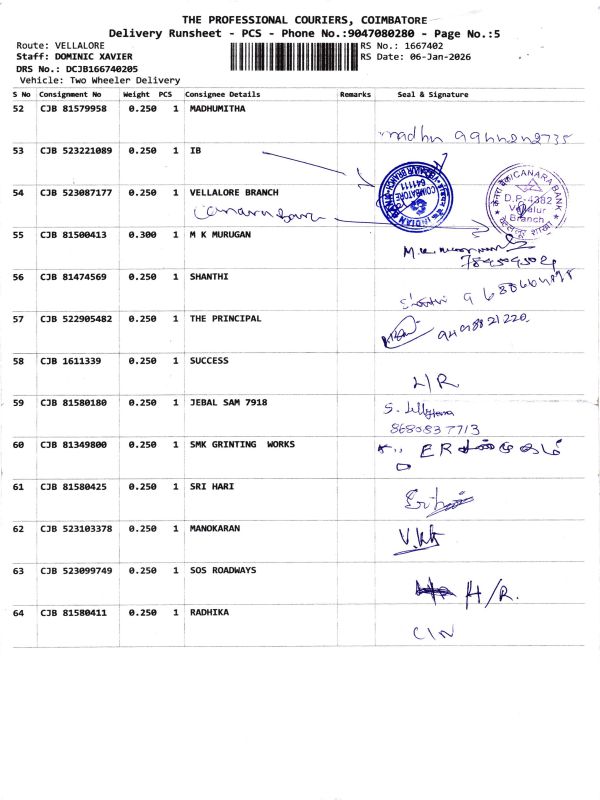 THE PROFESSIONAL COURIERS, COIMBATORE
Delivery Runsheet - PCS - Phone No.:9047080280 - Page No.:5
Route: VELLALORE RS No.: 1667402
Staff: DOMINIC XAVIER RS Date: 06-Jan-2026
DRS No.: DCJB166740205
Vehicle: Two Wheeler Delivery
S No Consignment No Weight PCS Consignee Details Remarks Seal & Signature
52 CJB 81579958 0.250 1 MADHUMITHA
madhu
53 CJB 523221089 0.250 1 IB
COIMBATORE 641111
54 CJB 523087177 0.250 1 VELLALORE BRANCH
Canara bank
CANARA BANK
D.P.-4382
Vellalur
Branch
55 CJB 81500413 0.300 1 M K MURUGAN
56 CJB 81474569 0.250 1 SHANTHI
57 CJB 522905482 0.250 1 THE PRINCIPAL
58 CJB 1611339 0.250 1 SUCCESS
59 CJB 81580180 0.250 1 JEBAL SAM 7918
8680837713
60 CJB 81349800 0.250 1 SMK GRINTING WORKS
61 CJB 81580425 0.250 1 SRI HARI
62 CJB 523103378 0.250 1 MANOKARAN
63 CJB 523099749 0.250 1 SOS ROADWAYS
H/R.
64 CJB 81580411 0.250 1 RADHIKA
C/N